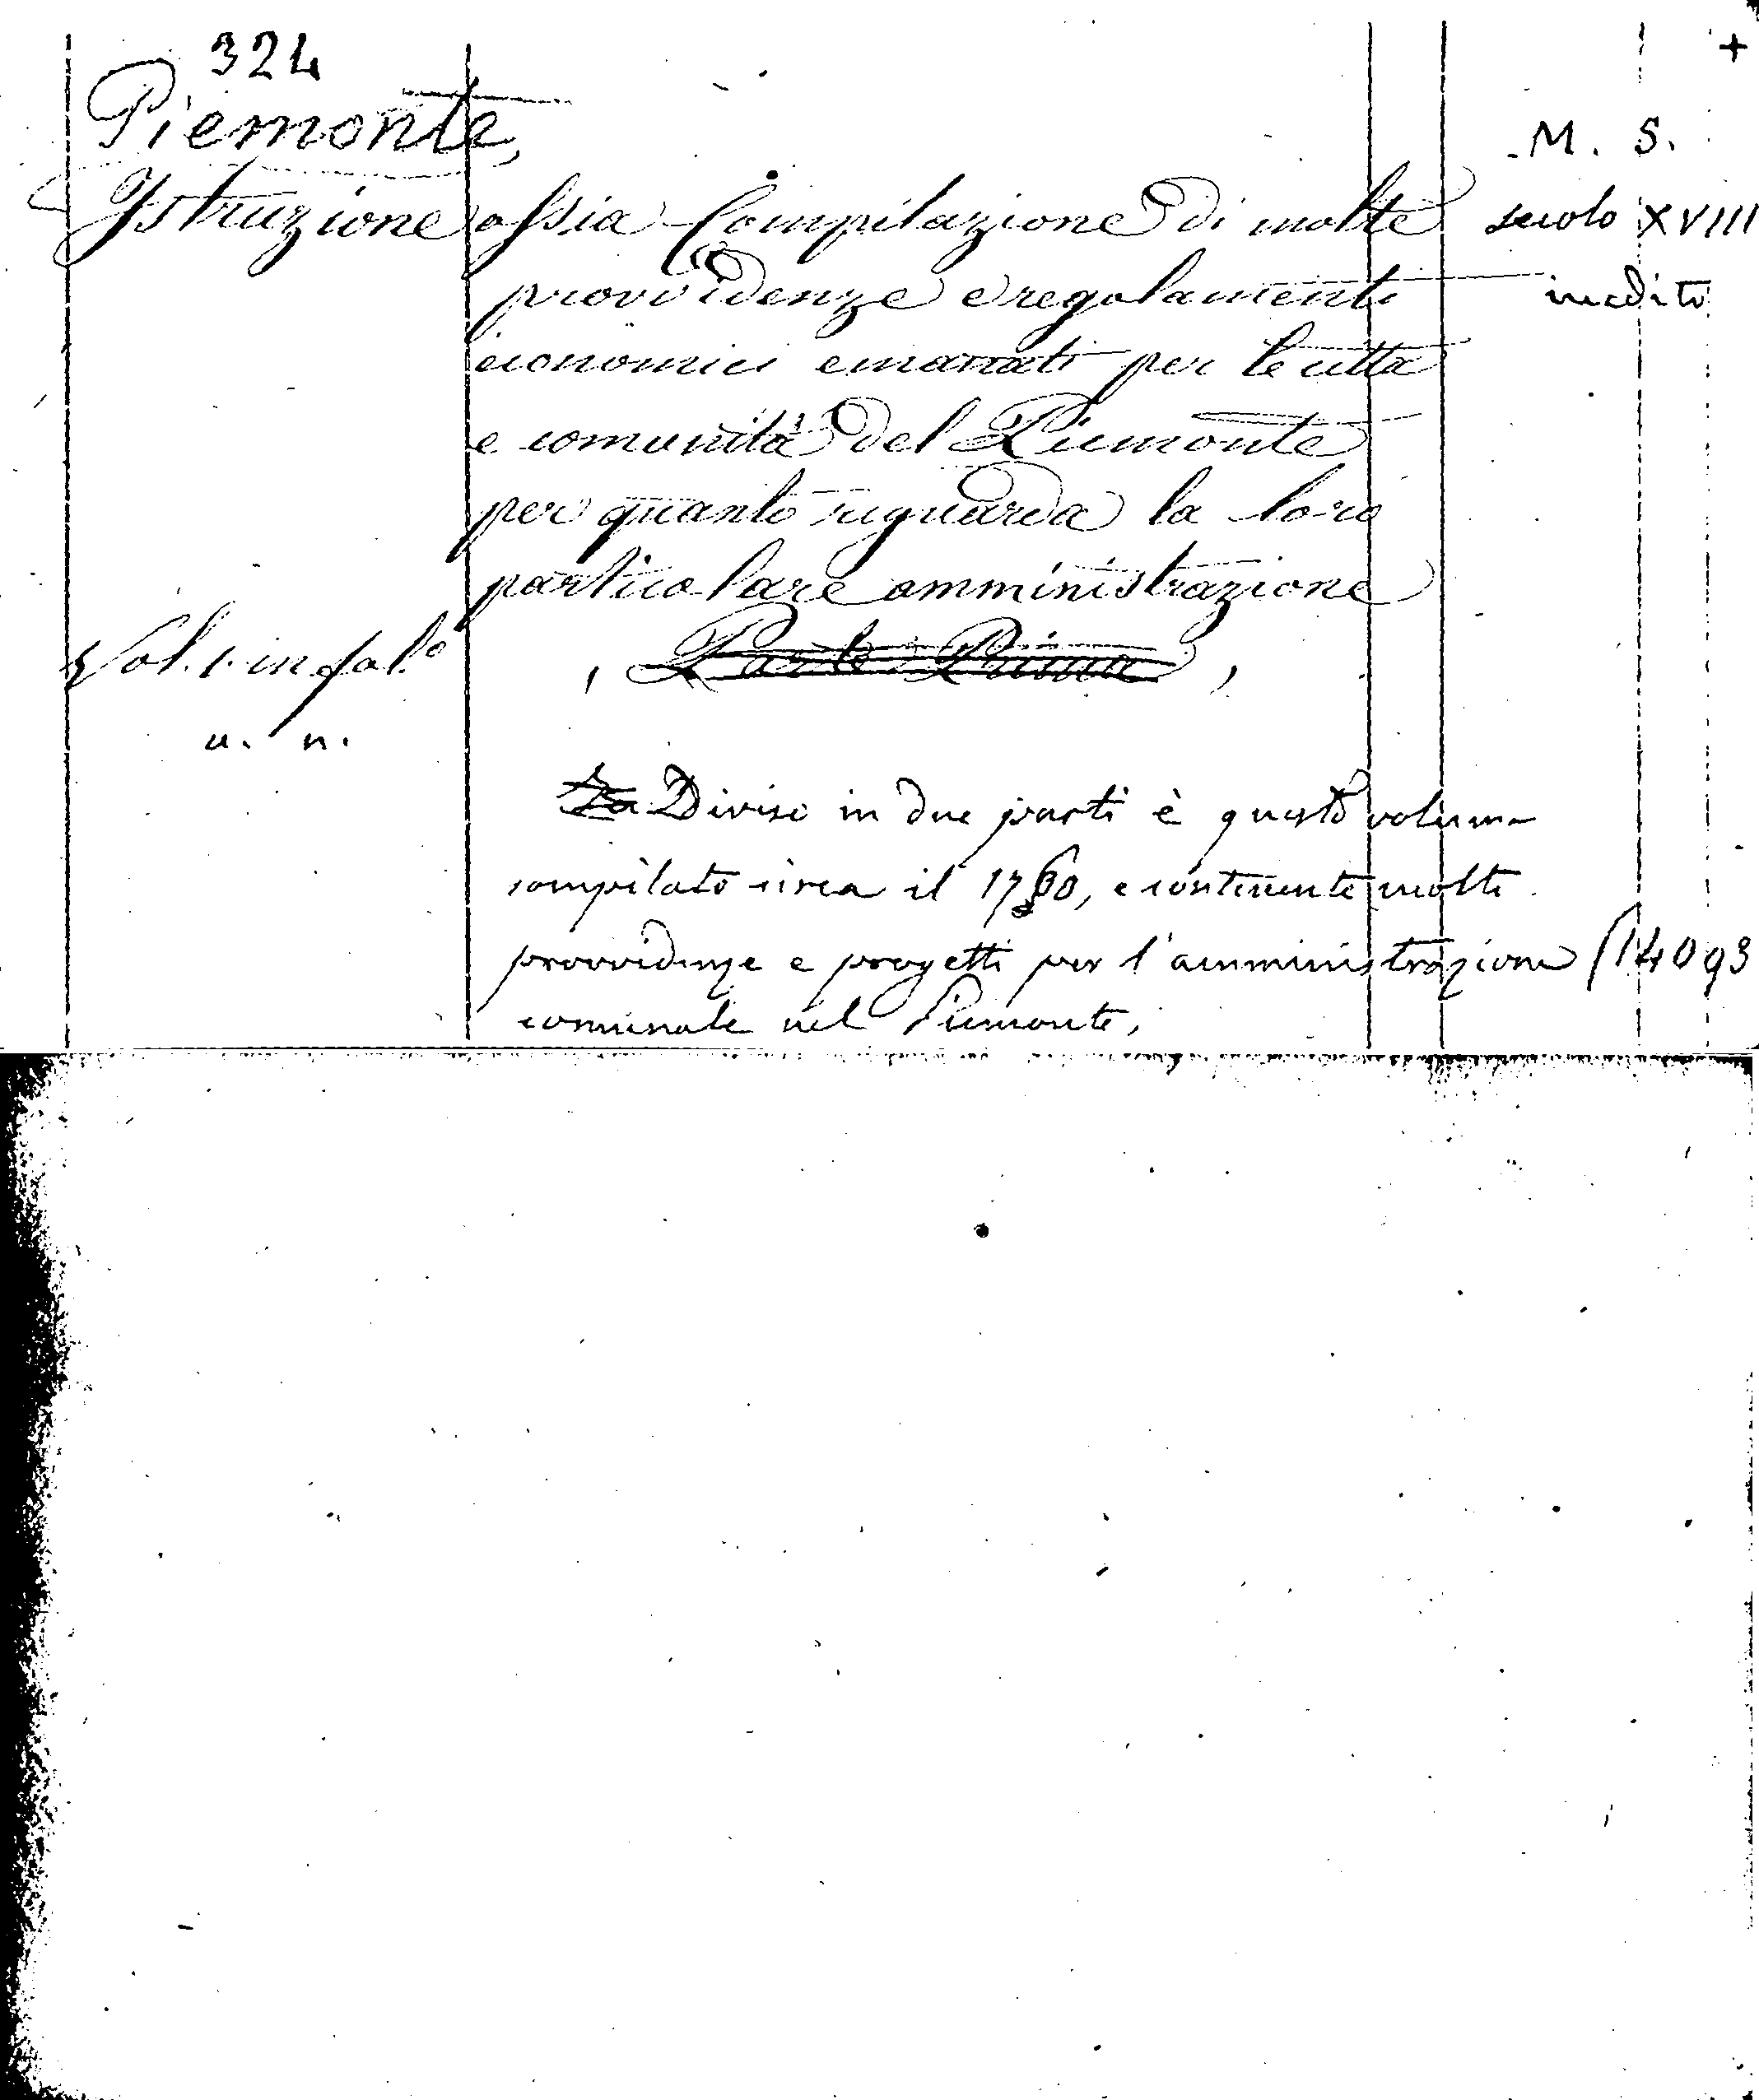 324 +
Piemonte,
M. S.
Istruzione ossia Compilazione di molte secolo XVIII
provvidenze e regolamenti inedito
economici emanati per le città
e comunità del Piemonte
per quanto riguarda la loro
particolare amministrazione
Vol. 1. in fol.º , Parte Prima ,
a. n.
La Diviso in due parti è questo volume
compilato circa il 1780, e contenente molte
provvidenze e progetti per l'amministrazione 14093
comunale nel Piemonte,